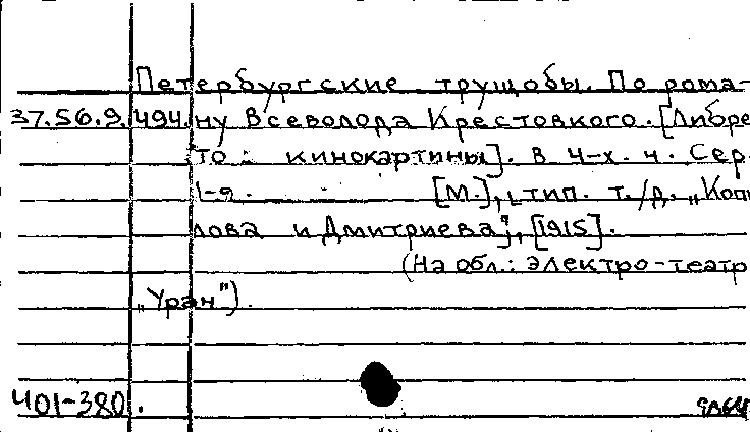 Петербургские трущобы. По рома-
37.56.9.494. ну Всеволода Крестовкого. [Либре
то : кинокартины]. в 4-х. ч. Сер
1-я. [М.], тип. т./д. „Копы
лова и Дмитриева", [1915].
(На обл.: электро-театр
„Уран").
401-380.